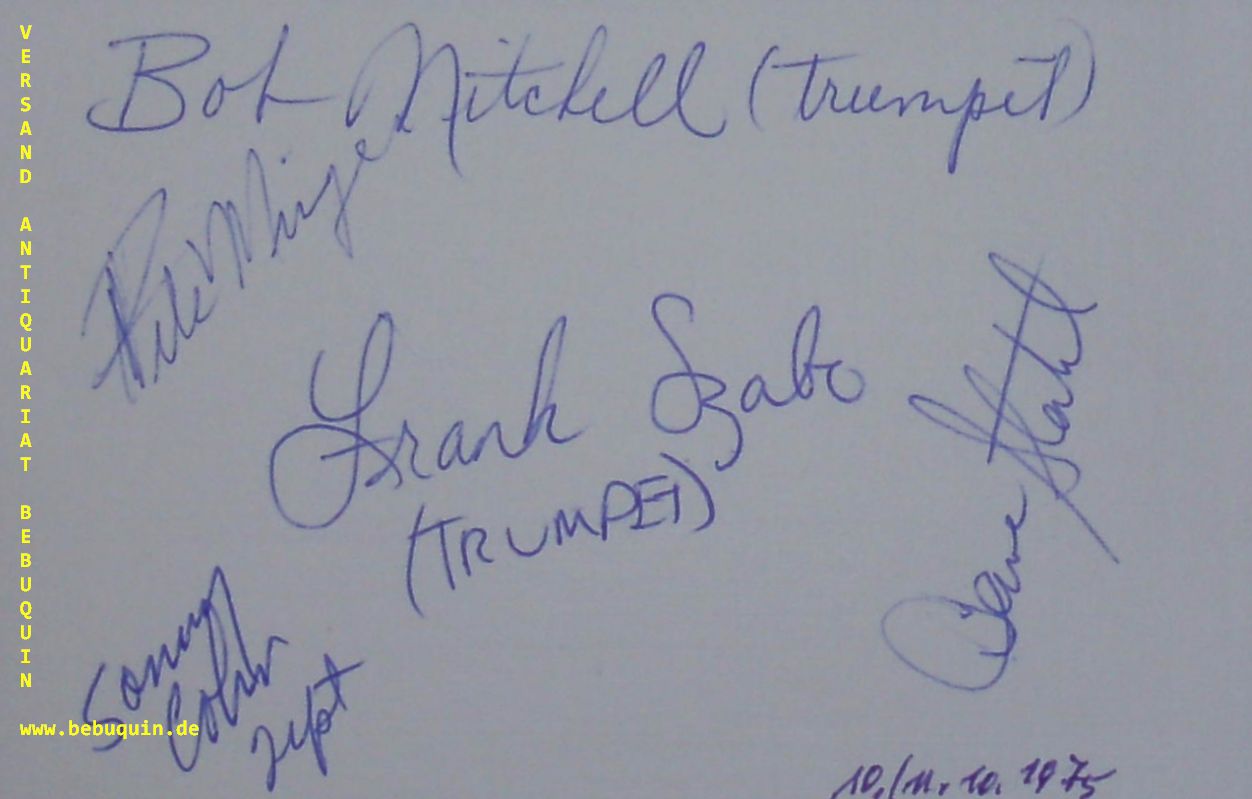 VERSAND ANTIQUARIAT BEBUQUIN
www.bebuquin.de
Bob Mitchell (trumpet)
Pete Minger
Frank Szabo
(TRUMPET)
Dave Stahl
Sonny
Cohn
10./11. 10. 1975